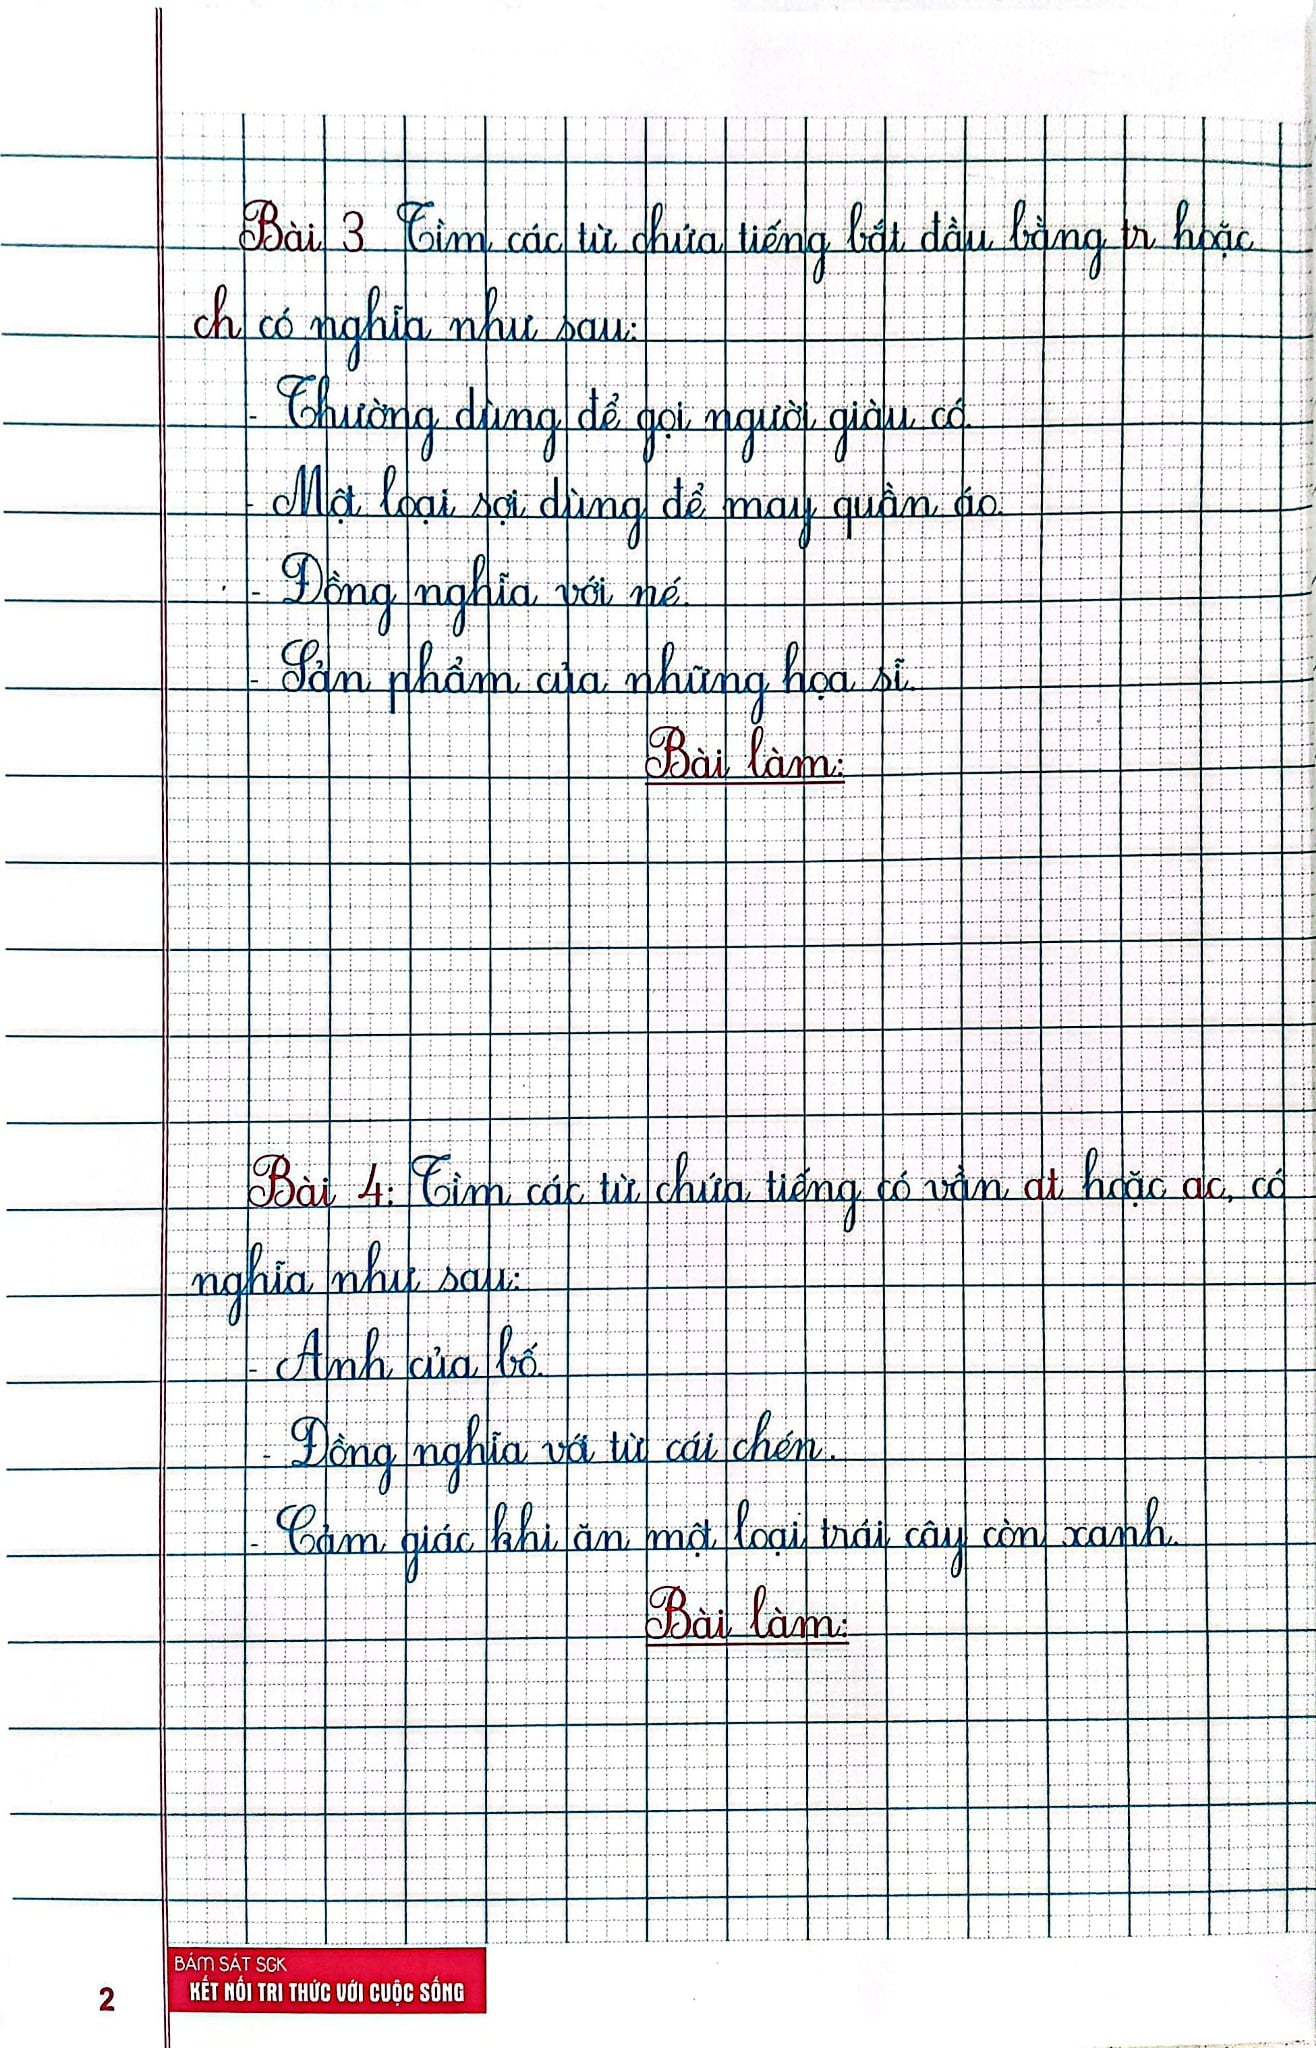 Bài 3 Tìm các từ chứa tiếng bắt đầu bằng tr hoặc
ch có nghĩa như sau:
- Thường dùng để gọi người giàu có.
- Một loại sợi dùng để may quần áo.
- Đồng nghĩa với né.
- Sản phẩm của những họa sĩ.
Bài làm:
Bài 4: Tìm các từ chứa tiếng có vần at hoặc ac, có
nghĩa như sau:
- Anh của bố.
- Đồng nghĩa vớ từ cái chén.
- Cảm giác khi ăn một loại trái cây còn xanh.
Bài làm:
BÁM SÁT SGK
2 KẾT NỐI TRI THỨC VỚI CUỘC SỐNG